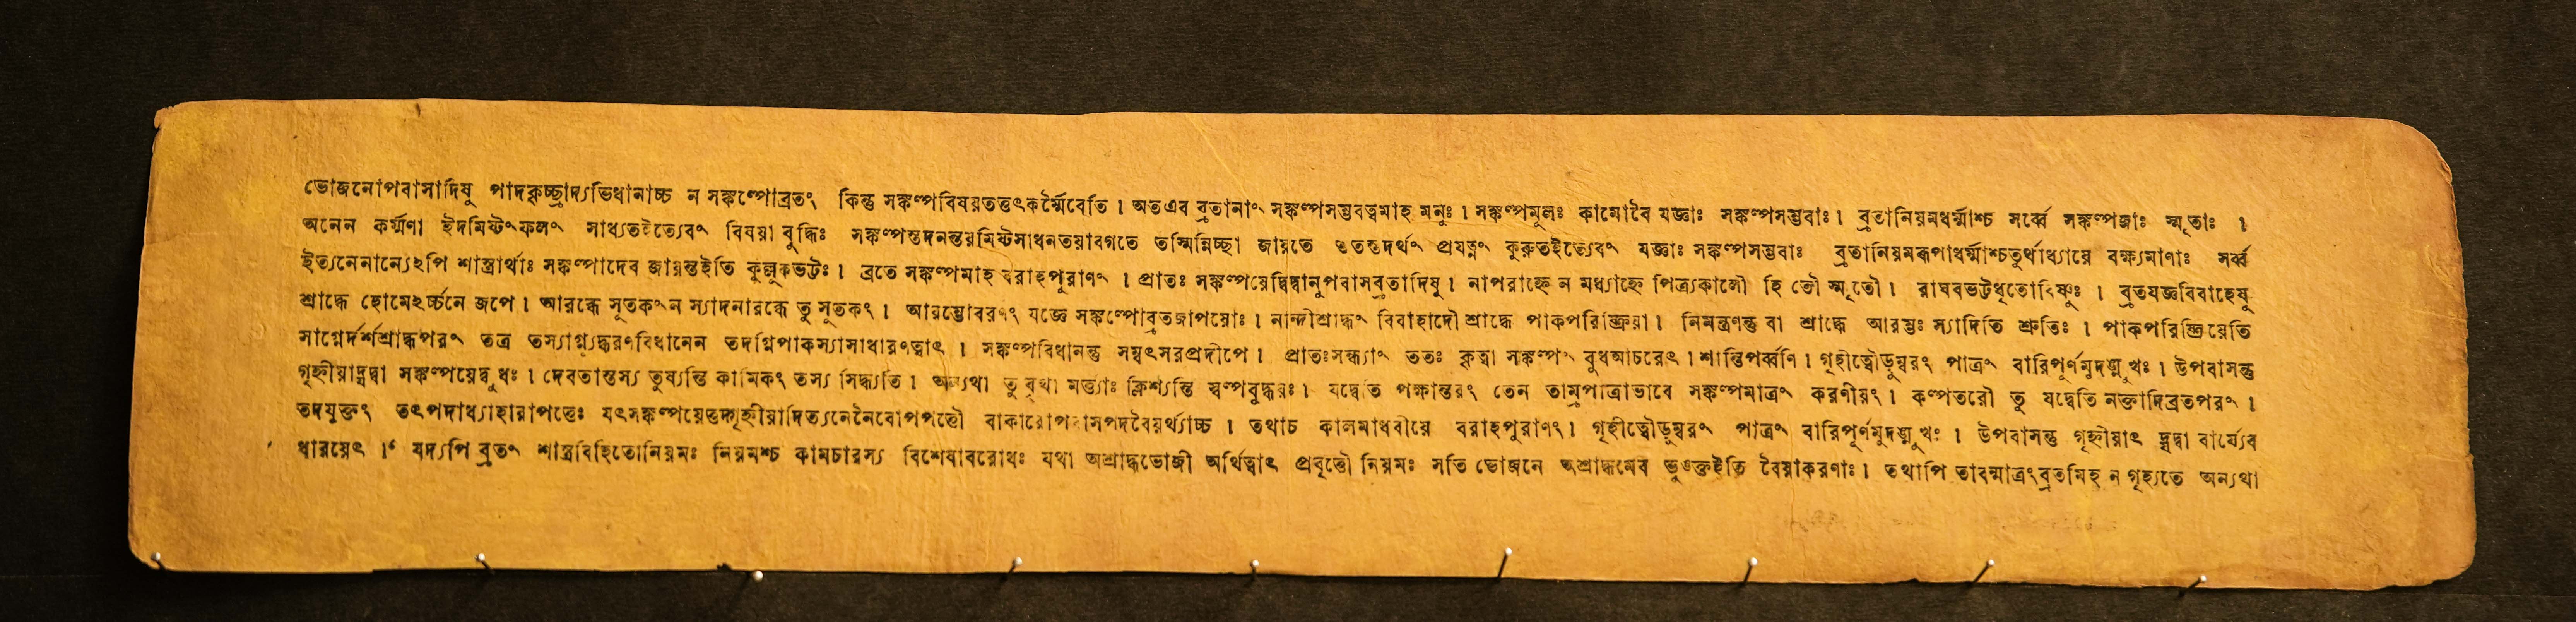 ভোজনোপবাসাদিষু পাদকৃচ্ছ্রাদ্যভিধানাচ্চ ন সঙ্কল্পোব্রতং কিন্তু সঙ্কল্পবিষয়তত্তৎকর্ম্মৈবেতি । অতএব ব্রতানাং সঙ্কল্পসম্ভবত্বমাহ মনুঃ । সঙ্কল্পমূলঃ কামোবৈ যজ্ঞাঃ সঙ্কল্পসম্ভবাঃ । ব্রতানিয়মধর্ম্মাশ্চ সর্ব্বে সঙ্কল্পজাঃ স্মৃতাঃ ।
অনেন কর্ম্মণা ইদমিষ্টংফলং সাধ্যতইত্যেবং বিষয়া বুদ্ধিঃ সঙ্কল্পস্তদনন্তরমিষ্টসাধনতয়াবগতে তস্মিন্নিচ্ছা জায়তে ততস্তদর্থং প্রযত্নং কুরুতইত্যেবং যজ্ঞাঃ সঙ্কল্পসম্ভবাঃ ব্রতানিয়মরূপাধর্ম্মাশ্চতুর্থাধ্যায়ে বক্ষ্যমাণাঃ সর্ব্ব
ইত্যনেনান্যেঽপি শাস্ত্রার্থাঃ সঙ্কল্পাদেব জায়ন্তইতি কুল্লূকভট্টঃ । ব্রতে সঙ্কল্পমাহ বরাহপুরাণং । প্রাতঃ সঙ্কল্পয়েদ্বিদ্বানুপবাসব্রতাদিষু । নাপরাহ্নে ন মধ্যাহ্নে পিত্র্যকালৌ হি তৌ স্মৃতৌ । রাঘবভট্টধৃতোবিষ্ণুঃ । ব্রতযজ্ঞবিবাহেষু
শ্রাদ্ধে হোমেঽর্চ্চনে জপে । আরব্ধে সূতকং ন স্যাদনারব্ধে তু সূতকং । আরম্ভোবরণং যজ্ঞে সঙ্কল্পোব্রতজাপয়োঃ । নান্দীশ্রাদ্ধং বিবাহাদৌ শ্রাদ্ধে পাকপরিষ্ক্রিয়া । নিমন্ত্রণন্তু বা শ্রাদ্ধে আরম্ভঃ স্যাদিতি শ্রুতিঃ । পাকপরিষ্ক্রিয়েতি
সাগ্নের্দর্শশ্রাদ্ধপরং তত্র তস্যাগ্ন্যুদ্ধরণবিধানেন তদগ্নিপাকস্যাসাধারণত্বাৎ । সঙ্কল্পবিধানন্তু সম্বৎসরপ্রদীপে । প্রাতঃসন্ধ্যাং ততঃ কৃত্বা সঙ্কল্পং বুধআচরেৎ । শান্তিপর্ব্বণি । গৃহীত্বৌডুম্বরং পাত্রং বারিপূর্ণমুদঙ্মুখঃ । উপবাসন্তু
গৃহ্ণীয়াদ্যদ্বা সঙ্কল্পয়েদ্বুধঃ । দেবতাস্তস্য তুষ্যন্তি কামিকং তস্য সিদ্ধ্যতি । অন্যথা তু বৃথা মর্ত্ত্যাঃ ক্লিশ্যন্তি স্বল্পবুদ্ধয়ঃ । যদ্বেতি পক্ষান্তরং তেন তাম্রপাত্রাভাবে সঙ্কল্পমাত্রং করণীয়ং । কল্পতরৌ তু যদ্বেতি নক্তাদিব্রতপরং ।
তদযুক্তং তৎপদাধ্যাহারাপত্তেঃ যৎসঙ্কল্পয়েত্তদ্গৃহ্ণীয়াদিত্যনেনৈবোপপত্তৌ বাকারোপবাসপদবৈয়র্থ্যাচ্চ । তথাচ কালমাধবীয়ে বরাহপুরাণং । গৃহীত্বৌডুম্বরং পাত্রং বারিপূর্ণমুদঙ্মুখঃ । উপবাসন্তু গৃহ্ণীয়াৎ যদ্বা বার্য্যেব
ধারয়েৎ । যদ্যপি ব্রতং শাস্ত্রবিহিতোনিয়মঃ নিয়মশ্চ কামচারস্য বিশেষাবরোধঃ যথা অশ্রাদ্ধভোজী অর্থিত্বাৎ প্রবৃত্তৌ নিয়মঃ সতি ভোজনে অশ্রাদ্ধমেব ভুঙক্তইতি বৈয়াকরণাঃ । তথাপি তাবন্মাত্রংব্রতমিহ ন গৃহ্যতে অন্যথা